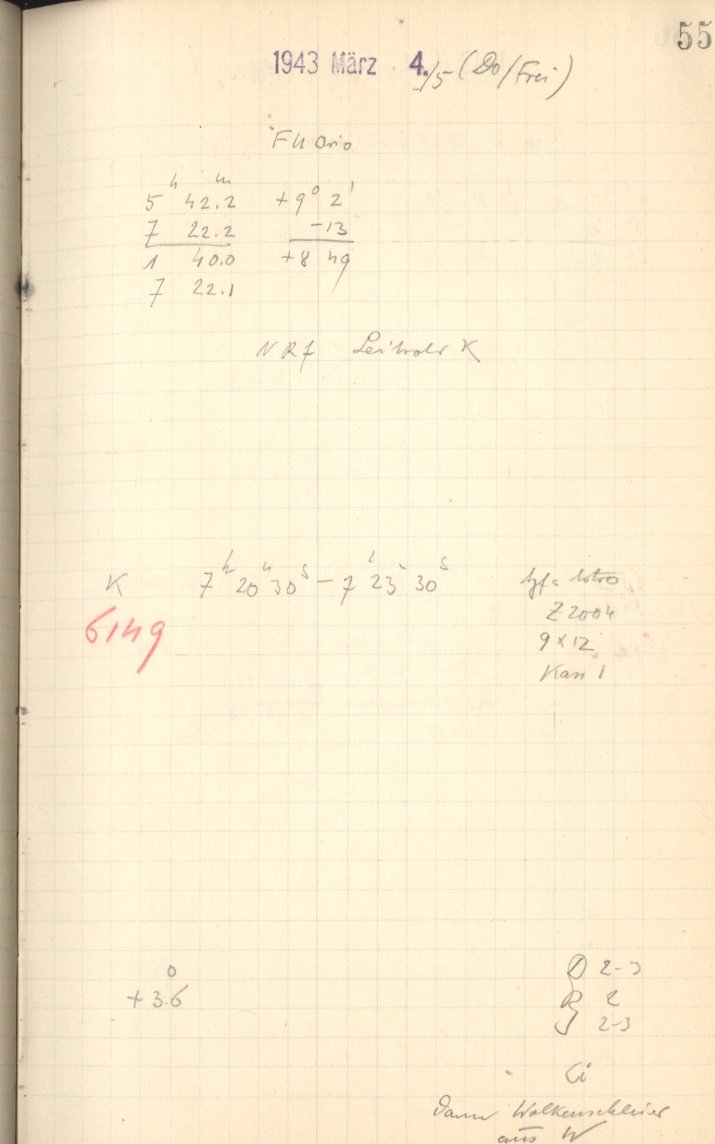 55
1943 März 4./5 (Do/Frei)
FU Orio
5ʰ 42.2ᵐ +9° 2'
7 22.2 -13
1 40.0 +8 49
7 22.1
K 7ʰ 20ᵐ 30ˢ – 7ʰ 23ᵐ 30ˢ
6149
Z 2004
9 x 12
Kass 1
0
+3.6
D 2-3
R 2
J 2-3
Ci
Dann Wolkenschleier
aus W